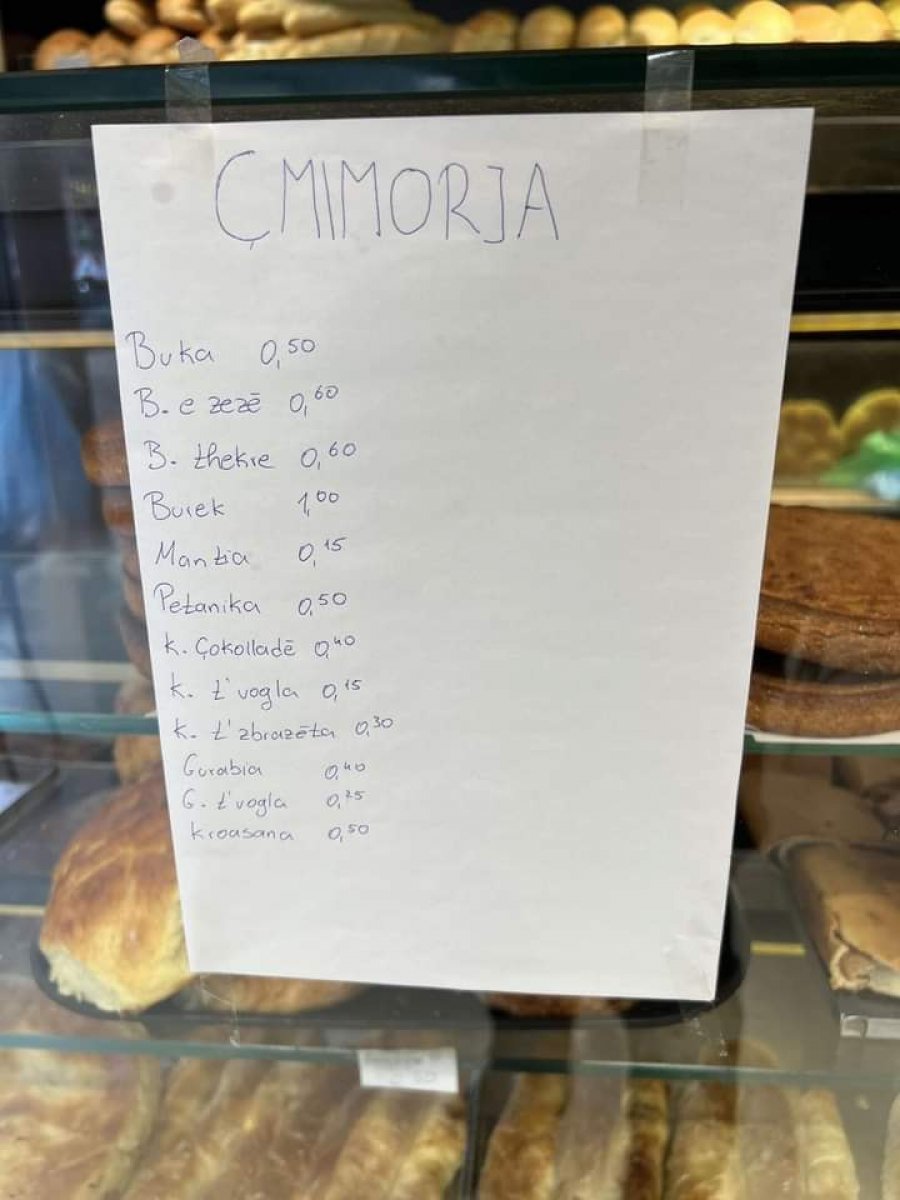 ÇMIMORJA
Buka 0,50
B. e zezë 0,60
B. thekre 0,60
Burek 1,00
Mantia 0,15
Petanika 0,50
k. Çokolladë 0,40
k. t'vogla 0,15
k. t'zbrazëta 0,30
Gurabia 0,40
G. t'vogla 0,25
kroasana 0,50